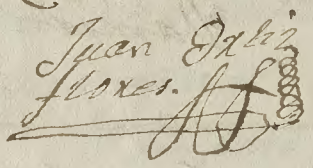 Juan Ortiz
flores.